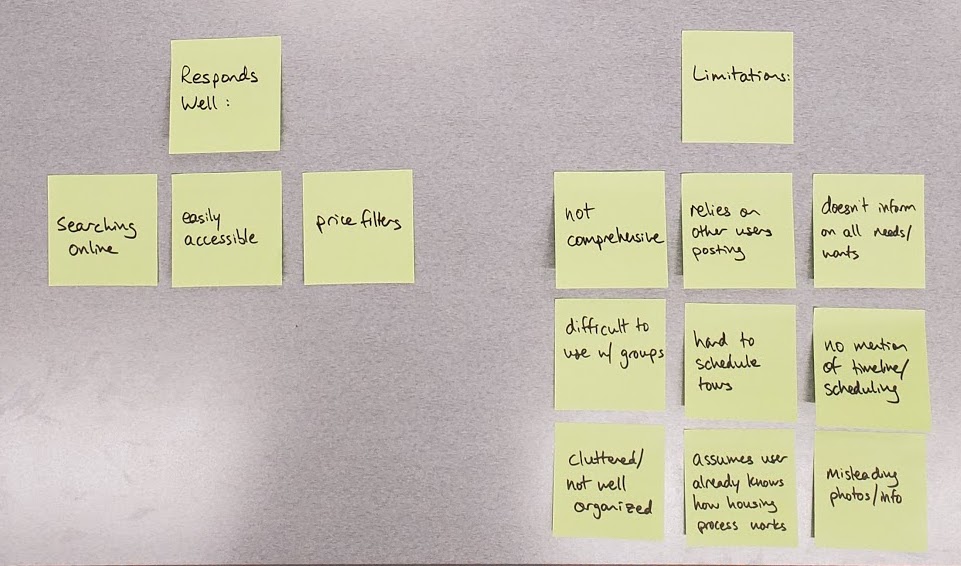 Responds
Well :
Searching
online
easily
accessible
price filters
Limitations:
not
comprehensive
relies on
other users
posting
doesn't inform
on all needs/
wants
difficult to
use w/ groups
hard to
schedule
tours
no mention
of timeline/
scheduling
cluttered/
not well
organized
assumes user
already knows
how housing
process works
Misleading
photos/info